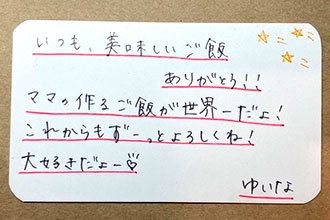 いつも、美味しいご飯
ありがとう!!
ママの作るご飯が世界一だよ!
これからもずーっとよろしくね!
大好きだよー♡
ゆいな